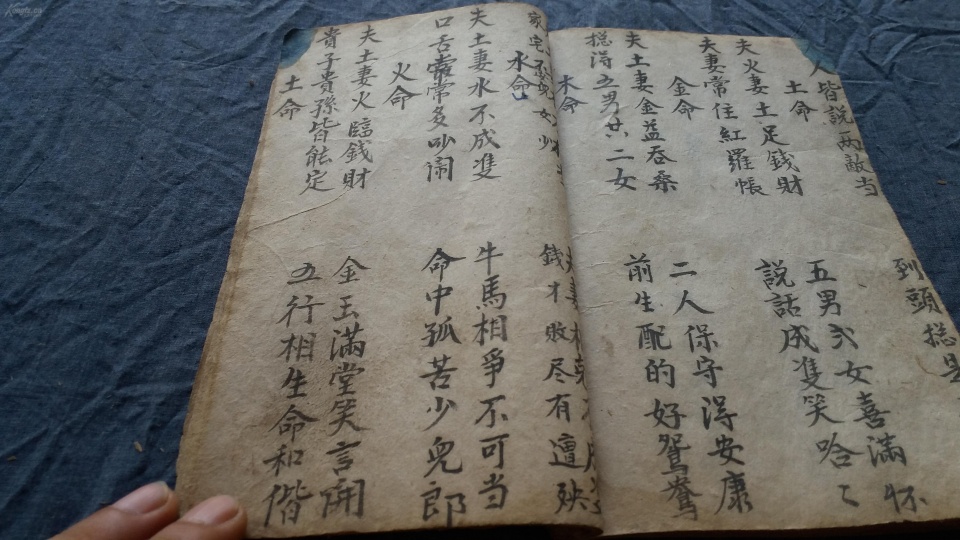 人皆說兩敵当 到頭捴是
土命
夫火妻土足錢財 五男弍女喜滿怀
夫妻常住紅羅帳 說話成隻笑哈〻
金命
夫土妻金益吞桑 二人保守淂安康
捴淂五男廿二女 前生配的好鴛鴦
木命
家宅 女少 錢才敗尽有遭殃
水命
夫土妻水不成隻 牛馬相爭不可当
口舌常常多吵闹 命中孤苦少兒郎
火命
夫土妻火臨錢財 金玉滿堂笑言開
貴子貴孫皆能定 五行相生命和偕
土命